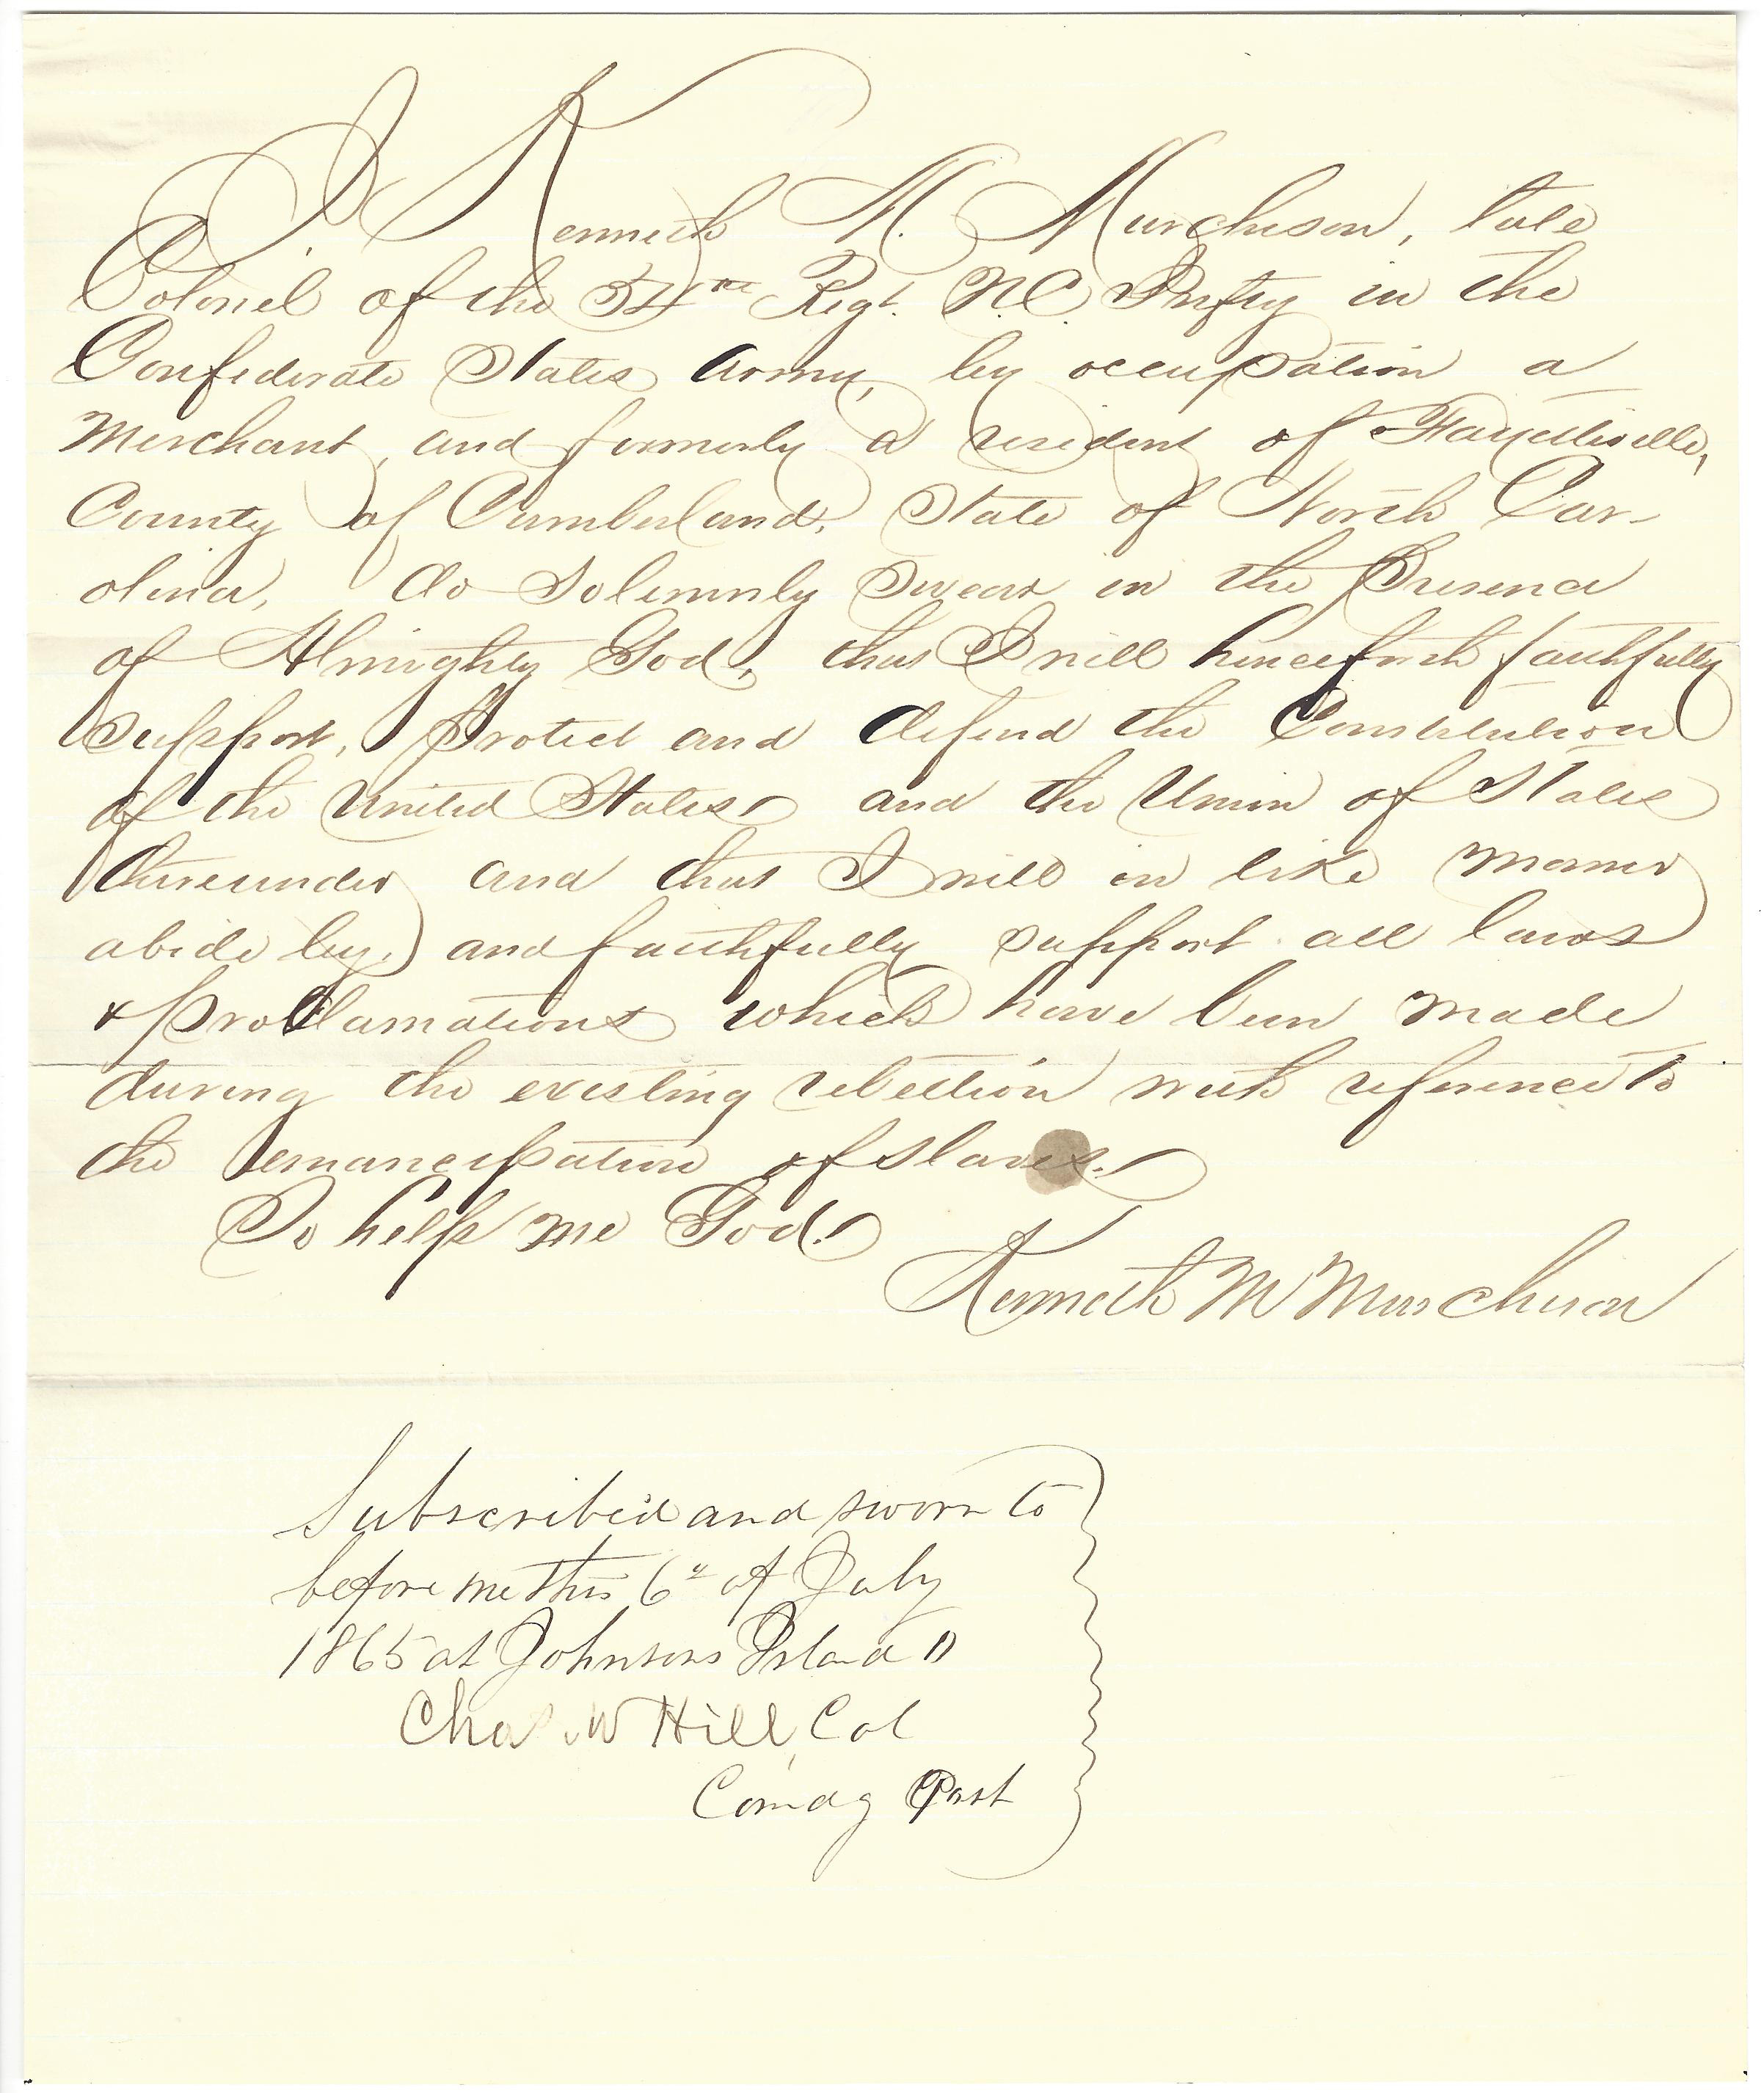 I Kenneth M. Murchison, late
Colonel of the 54th Regt. N.C. Infty in the
Confederate States Army, by occupation a
Merchant, and formerly a resident of Fayetteville,
County of Cumberland, State of North Car-
olina, do Solemnly Swear in the Presence
of Almighty God, that I will henceforth faithfully
support, Protect and defend the Constitution
of the United States and the Union of States
thereunder and that I will in like manner
abide by, and faithfully support all laws
& Proclamations which have been made
during the existing rebellion with reference to
the emancipation of slaves.
So help me God!
Kenneth M Murchison
Subscribed and sworn to
before me this 6" of July
1865 at Johnsons Island O
Chas. W Hill, Col
Comdg Post